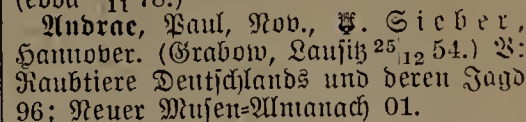 (ebda 11 78.)
Andrae, Paul, Nov., W. Sieber,
Hannover. (Grabow, Lausitz 25|12 54.) V:
Raubtiere Deutschlands und deren Jagd
96; Neuer Musen-Almanach 01.